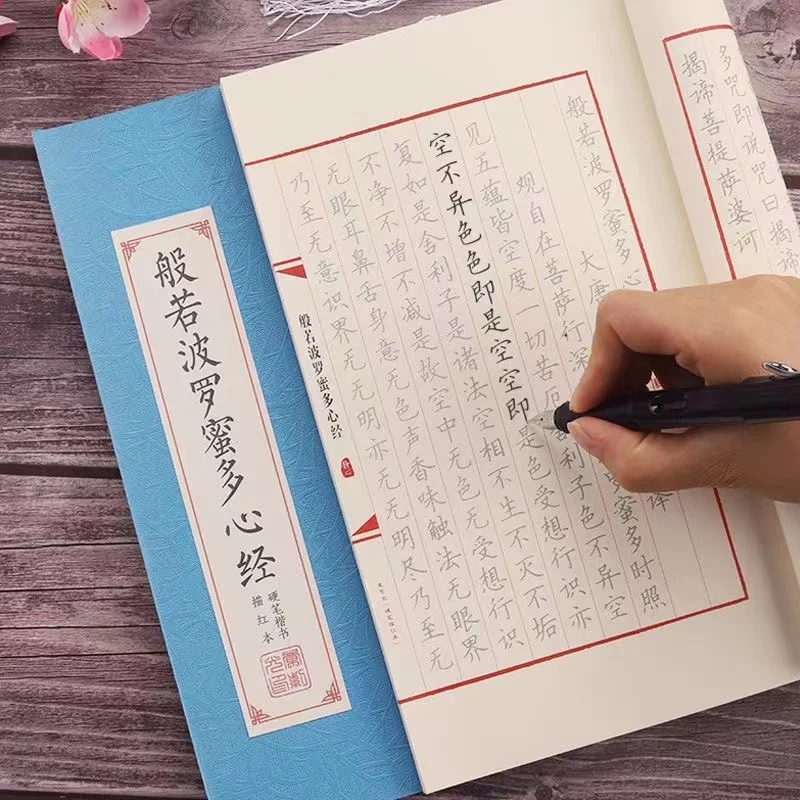 多咒即说咒曰揭谛
揭谛菩提萨婆诃
般若波罗蜜多心
大唐 译
观自在菩萨行深 罗蜜多时照
见五蕴皆空度一切苦厄 利子色不异空
空不异色色即是空空即是色受想行识亦
复如是舍利子是诸法空相不生不灭不垢
不净不增不减是故空中无色无受想行识
无眼耳鼻舌身意无色声香味触法无眼界
乃至无意识界无无明亦无无明尽乃至无
般若波罗蜜多心经
般若波罗蜜多心经
硬笔楷书
描红本